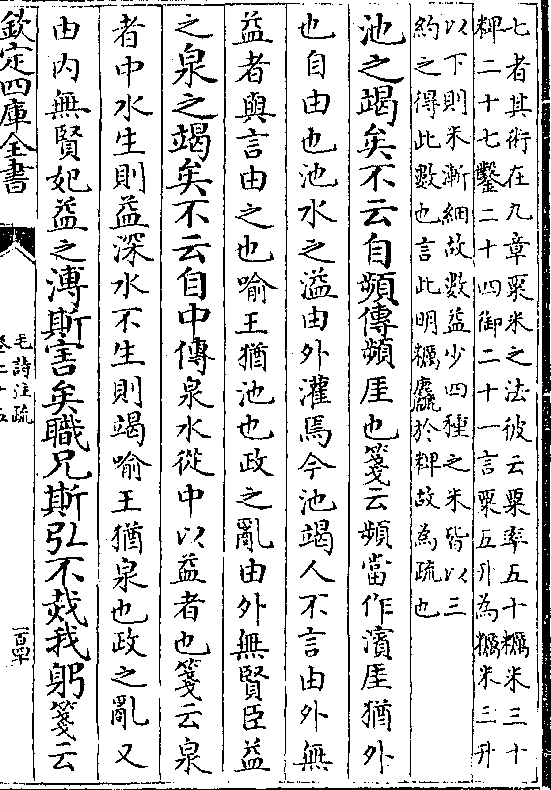 七者其術在九章粟米之法彼云粟率五十糲米三十
粺二十七鑿二十四御二十一言粟五升為糲米三升
以下則米漸細故數益少四種之米皆以三
約之得此數也言此明糲麤於粺故為疏也
池之竭矣不云自頻傳頻厓也箋云頻當作濱厓猶外
也自由也池水之溢由外灌焉今池竭人不言由外無
益者與言由之也喻王猶池也政之亂由外無賢臣益
之泉之竭矣不云自中傳泉水從中以益者也箋云泉
者中水生則益深水不生則竭喻王猶泉也政之亂又
由内無賢妃益之溥斯害矣職兄斯弘不烖我躬箋云
欽定四庫全書
毛詩注疏
卷二十五